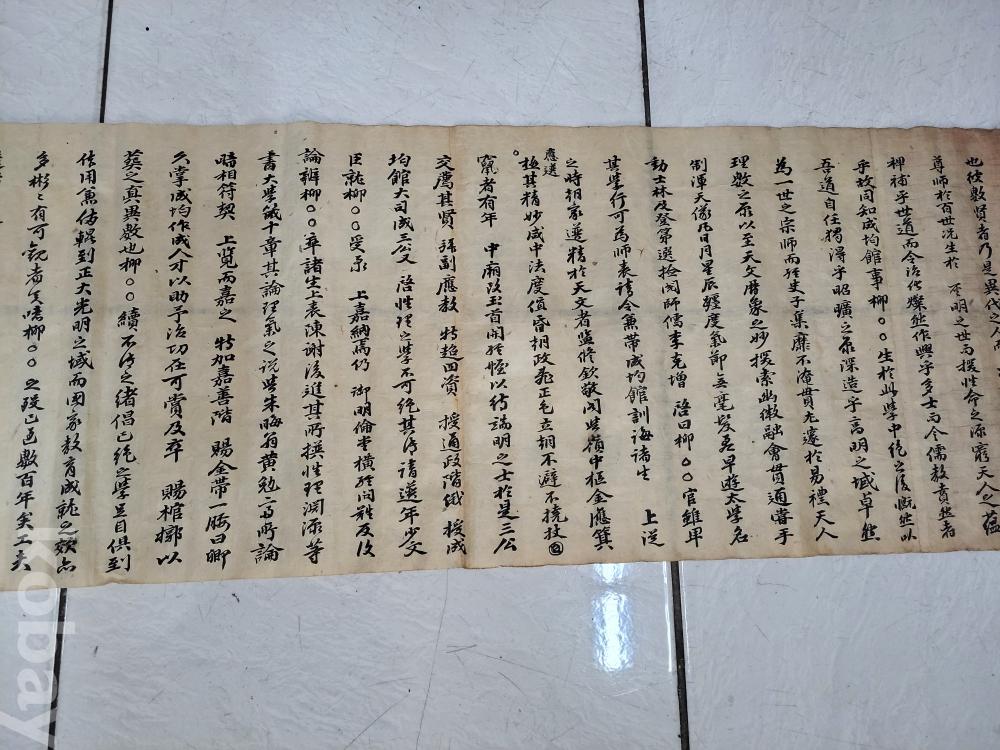 也彼數賢者乃是異代之人而
尊師於百世况生於 聖明之世而撰性命之源窮天人之蘊
裨補乎世道而令治化燦然作興乎多士而令儒教賁然者
乎故同知成均館事柳○○生於此學中絶之後慨然以
吾道自任獨得乎昭曠之原深造乎高明之域卓然
為一世之宗師而經史子集靡不淹貫尤邃於易禮天人
理數之原以至天文曆象之妙探索幽微融會貫通嘗手
制渾天儀凡日月星辰躔度氣節無毫髮差早遊太學名
動士林及登第選授閣師儒李克增 啓曰柳○○官雖卑
其學行可為師表請令兼帶成均館訓誨諸生 上從
之時朝家選精於天文者監修欽敬閣柴嶺中樞金應箕
應選
極其精妙咸中法度值昏朝政亂正色立朝不避不撓投
竄者有年 中廟改玉首開經幄以待端明之士於是三公
交薦其賢 拜副應教 特超四資 授通政階俄 授成
均館大司成三公又 啓性理之學不可絶其傳請選年少文
臣就柳○○受業 上嘉納焉仍 御明倫堂橫經問難反復
論辨柳○○率諸生上表陳謝後進其所撰性理淵源等
書大學箴十章其論理氣之說與朱晦翁黄勉齋所論
暗相符契 上覽而嘉之 特加嘉善階 賜金帶一腰曰卿
久掌成均作成人才以助予治功在可賞及卒 賜棺槨以
葬之真異數也柳○○續不傳之緒倡已絶之學足目俱到
體用兼備輥到正大光明之域而國家教育成就之效亦
多彬彬有可觀者矣嗟柳○○之歿已迄數百年矣工夫
Kobay